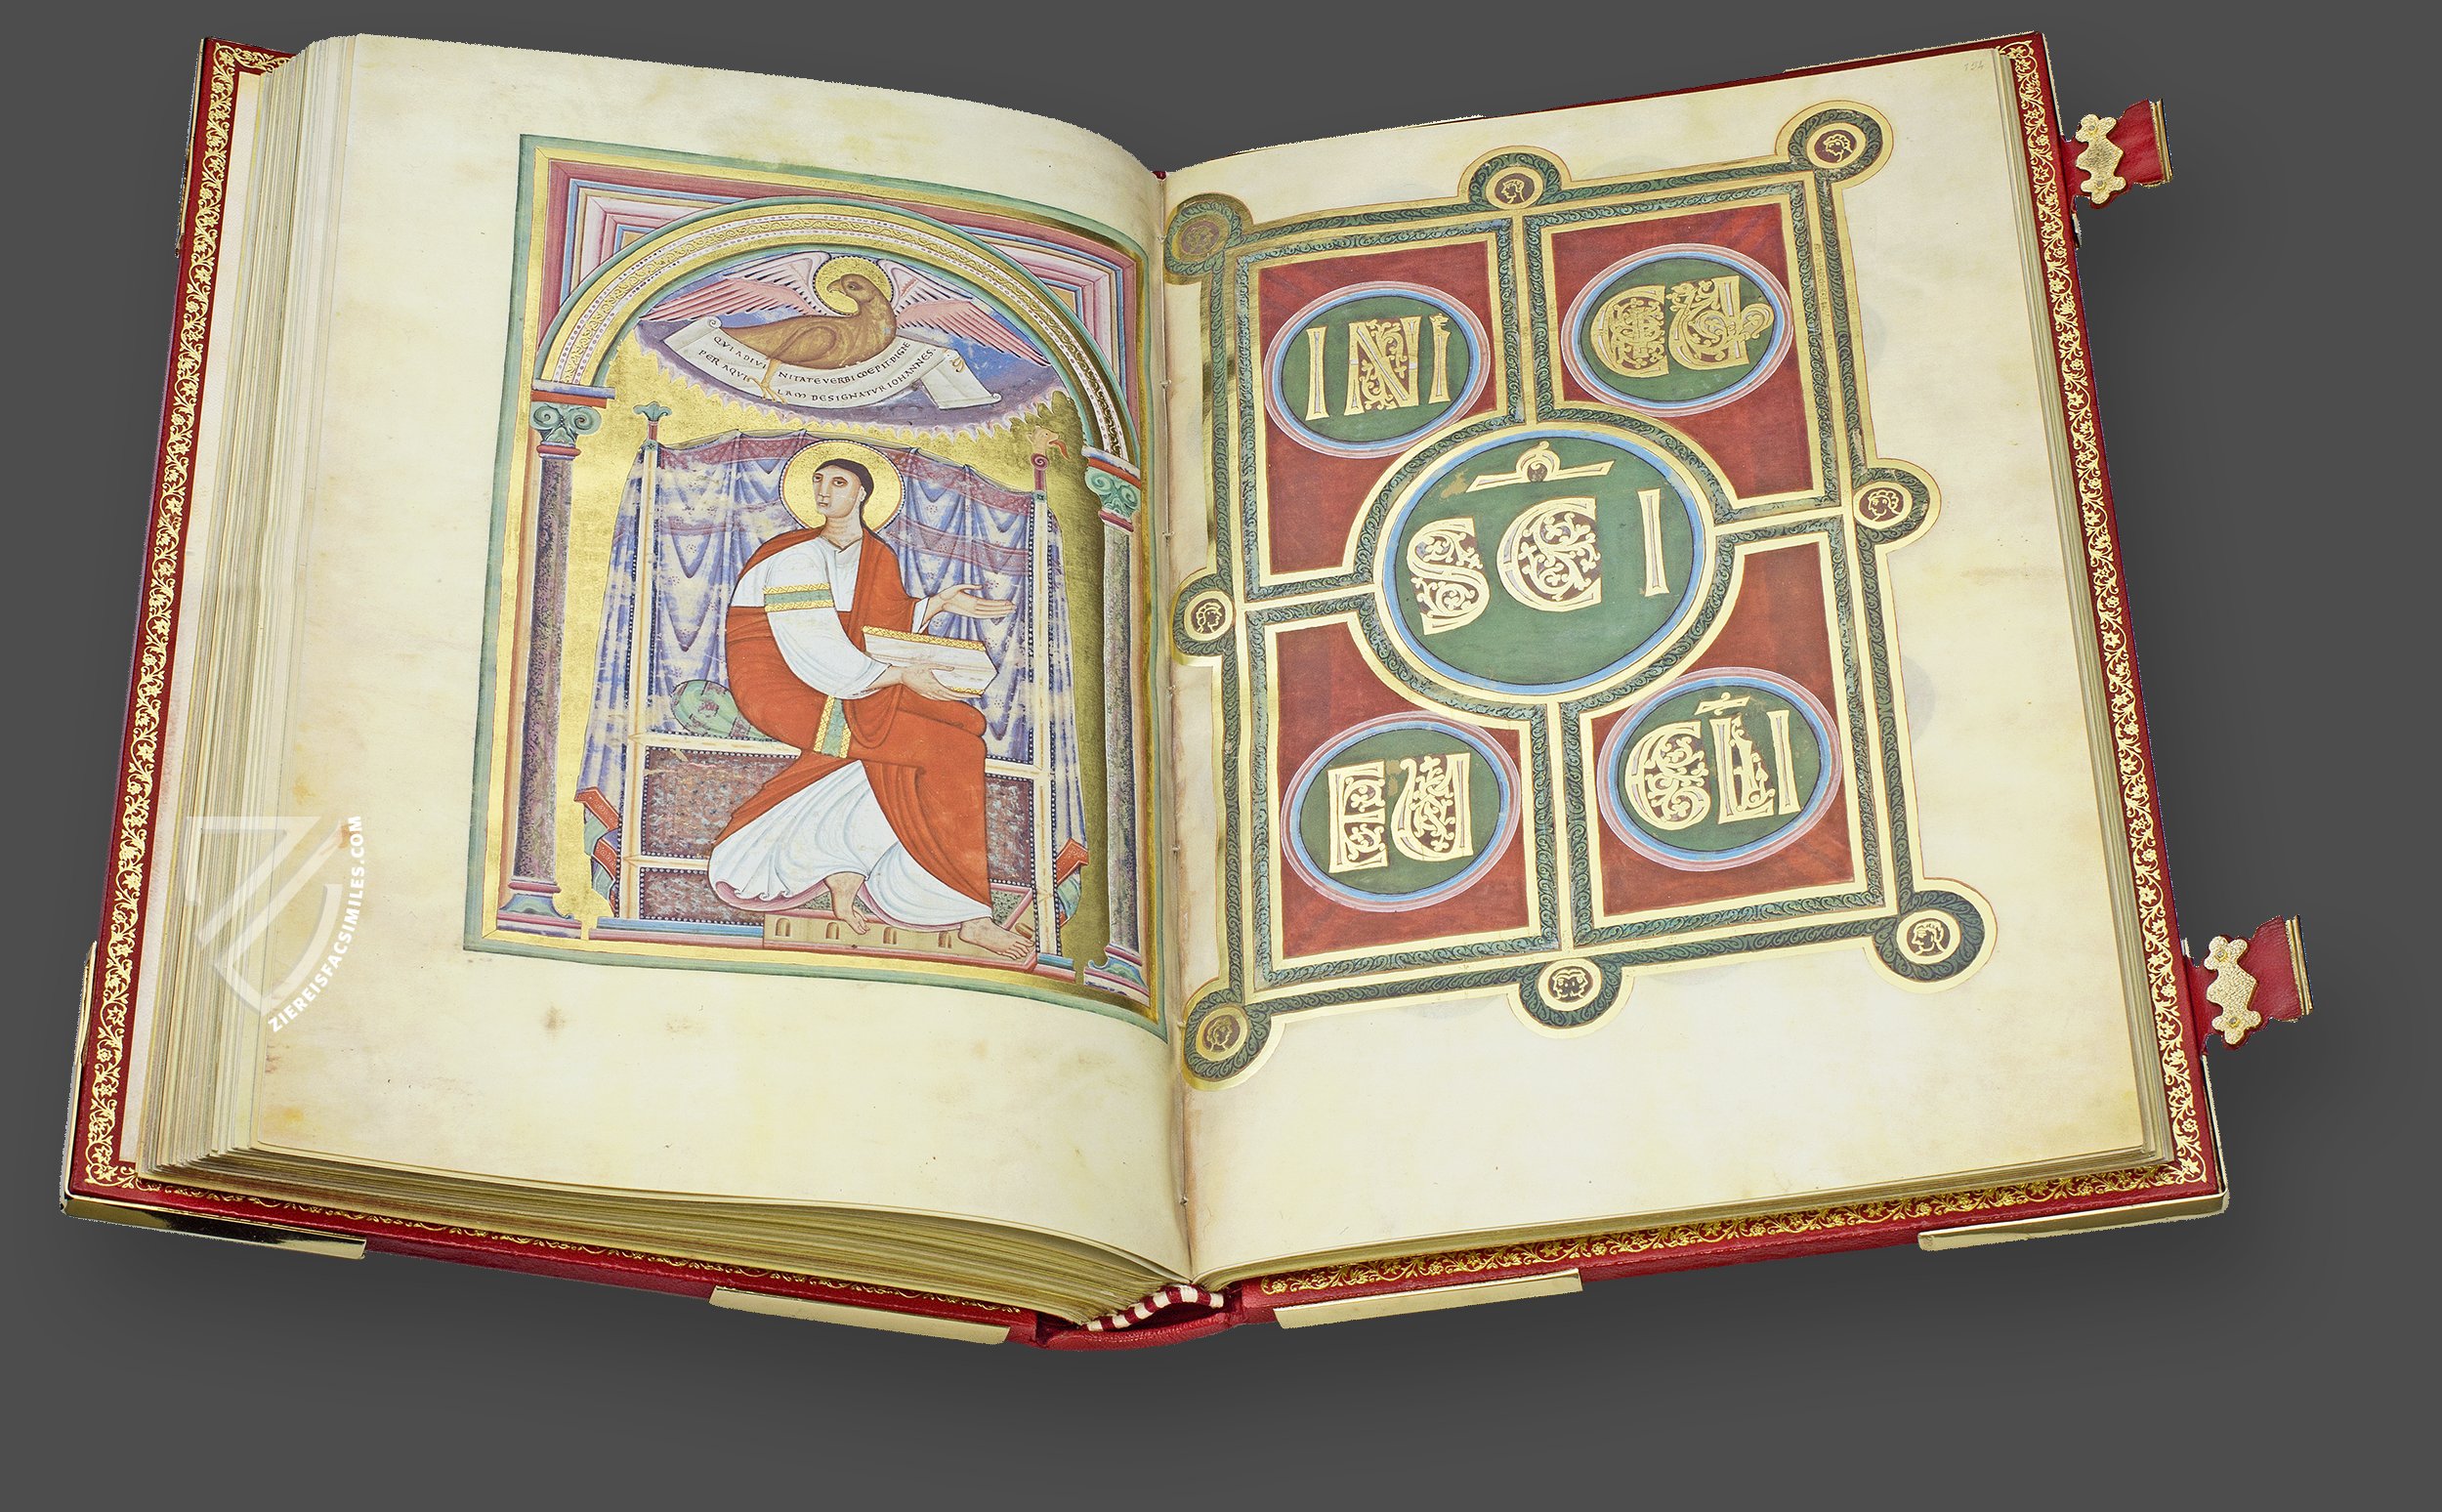 QVI A DIVINITATE VERBI COEPIT DIGNE
PER AQVILAM DESIGNATVR IOHANNES.
INI
SCI
EU
CLI
154
ZIEREISFACSIMILES.COM